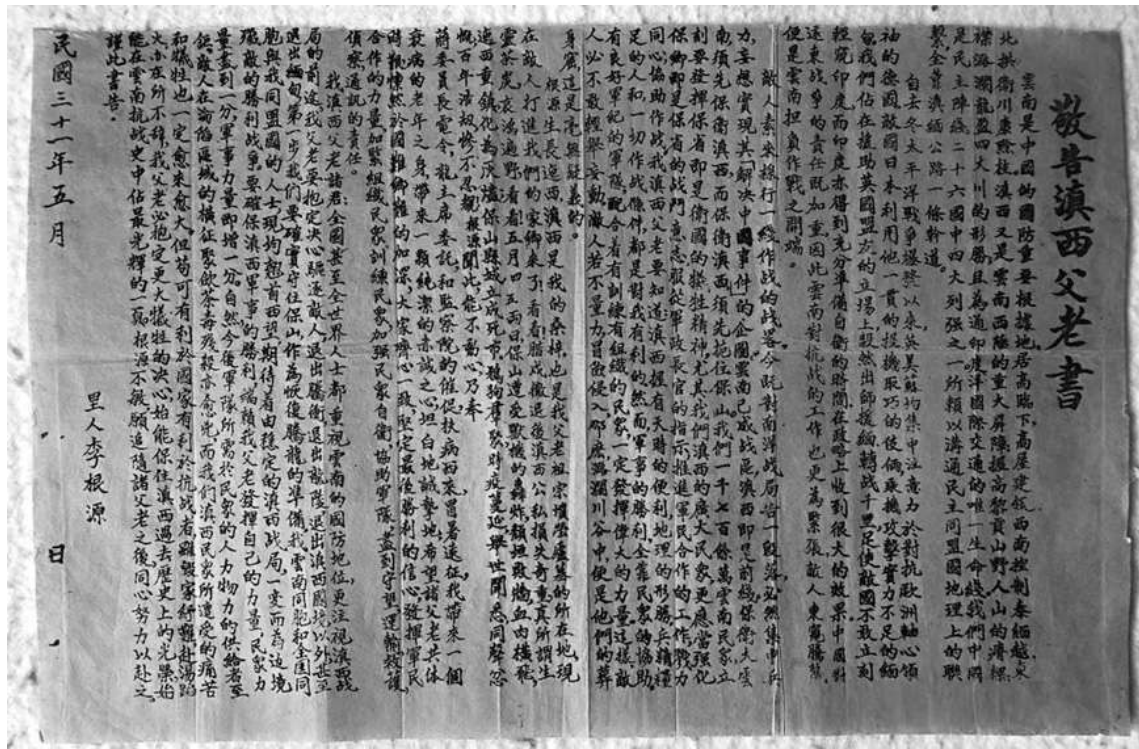 敬告滇西父老書
雲南是中國的國防重要根據地居高臨下,高屋建瓴西南控制泰緬越東
北拱衛川康黔桂滇西又是雲南西陲的重大屏障擁高黎貢山野人山的
襟海瀾龍盈四大川的形勝且為通印度洋國際交通的唯一生命綫我們中國
是民主陣綫二十六國中四大列强之一所賴以溝通民主同盟國地理上的聯
繫,全靠滇緬公路一條幹道。
自去冬太平洋戰爭爆發以來,英美蘇均集中注意力於對抗歐洲軸心領
袖的德國敵國日本利用他一貫的投機取巧的伎倆乘機攻擊實力不足的緬
甸我們站在援助英國盟友的立場上毅然出師援緬轉戰千里足使敵國不敢立刻
窺印度而印度亦得到充分準備自衛的時間在政略上收到很大的效果中國對
遠東战爭的責任既加重因此雲南對抗战的工作也更為緊張敵人東竄騰龍
便是雲南担負作戰之開端。
敵人素來採行一綫作战的战畧今既對南洋战局告一段落必然集中兵
力,妄想實現其「解決中國事件的企圖雲南已成战區滇西即是前綫保衛大雲
南須先保衛滇西而保衛滇西須先扼住保山我們一千七百餘萬雲南民眾立
刻要發揮保省即是衛國的犧牲精神,尤其我們滇西的廣大民眾,更應當强化
保鄉即是保省的战鬥意志服從軍政長官的指示推進軍民合作的工作戮力
同心協助作戰,我滇西父老要知道滇西握有天時的便利地理的形勝兵精糧
足的人和,一切作战條件都是對我有利的然而軍事的勝利全靠民眾的協助,
有良好軍紀的軍隊,配合着有訓練有組織的民眾,一定發揮偉大的力量這樣敵
人必不敢輕舉妄動敵人若不量力冒險侵入那麼潞瀾川谷中,便是他們的葬
身窟,這是毫無疑義的。
根源生長迤西滇西是我的桑梓,也是我父老祖宗墳塋廬墓的所在地現
在敵人打進我們的家鄉來了看看騰戍撤退後滇西公私損失奇重真所謂生
靈塗炭哀鴻遍野看看五月四五兩日,保山遭受獸機的轟炸頹垣敗牆血肉橫飛,
迤西重鎮化為灰燼保山縣城立成死市,鷄狗羣聚時疫蔓延舉世聞悉同聲忿
慨百年浩劫慘不忍覩根源聞此能不動心乃奉
蔣委員長電令,龍主席委託,和監察院的催促扶病西來遠征我帶來一個
衰病的老年之身帶來一顆純潔的赤誠之心坦白地誠摯地希望諸父老共体
時艱懍然於國難鄉難的加深大家齊心一致堅定最後勝利的信心發揮軍民
合作的力量加緊組織民眾訓練民眾加强民眾自衛,協助軍隊,盡到守望,運輸救護,
偵察通訊的責任。
我滇西父老諸君:全國甚至全世界人士都重視雲南的國防地位,更注視滇西战
局的前途我父老要抱定决心驅逐敵人退出騰衝退出龍陵退出滇西國境以外甚至
退出緬甸第一步我們要確實守住保山作為恢復騰龍的準備我雲南同胞和全国同
胞與我同盟國的人士現均翹首西望期待着由穩定的滇西战局,一變而為边境
殲敵的勝利战爭要確保滇西軍事的勝利端賴我父老發揮自己的力量民眾力
量盡到一分,軍事力量即增一分自然今後軍隊所需於民眾的人力物力的供給者至
鉅,敵人在淪陷區域的橫征聚歛荼毒殘殺亦愈兇,而我們滇西民眾所遭受的痛苦
和犧牲也一定愈來愈大但苟可有利於國家有利於抗战者雖毀家紓難赴湯蹈
火,亦在所不辭,我父老必抱定更大犧牲的决心始能保住滇西過去歷史上的光榮始
能在雲南抗战史中佔最光輝的一頁根源不敏願追隨諸父老之後同心努力以赴之,
謹此書告。
里人李根源
民國三十一年五月 日